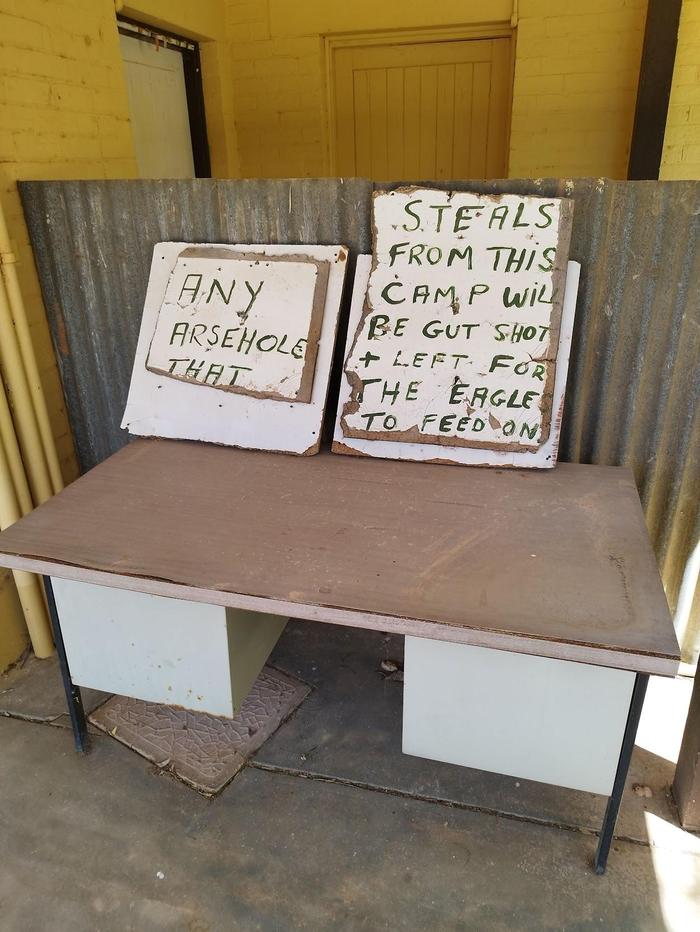 ANY
ARSEHOLE
THAT
STEALS
FROM THIS
CAMP WILL
BE GUT SHOT
+ LEFT FOR
THE EAGLE
TO FEED ON